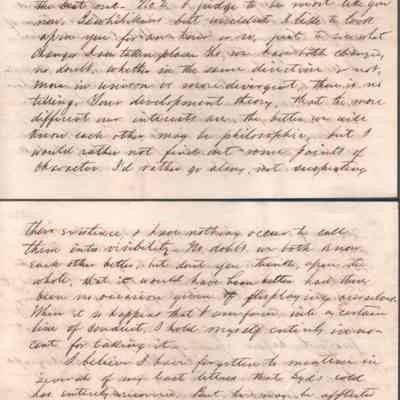 the best one. No. 2 I judge to be most like you
now. I would but I like to look
upon you for an hour or so, just to see what
changes have taken place tho' we have both changed,
no doubt, whether in the same direction or not,
more in unison or more divergent there is no
telling. Your development theory, that the more
different our interests are, the better we will
know each other may be philosophic, but I
would rather not find out some points of
character. I'd rather go along, not suspecting
their existence, & have nothing occur to call
them into visibility. No doubt we both know
each other better, but don't you think, upon the
whole, that it would have been better had there
been no occasion given of displaying ourselves.
When it so happens that I into a certain
line of conduct, I hold myself entirely
for taking it.
I believe I have forgotten to mention in
several of my last letters that cold
has entirely. But he may be afflicted